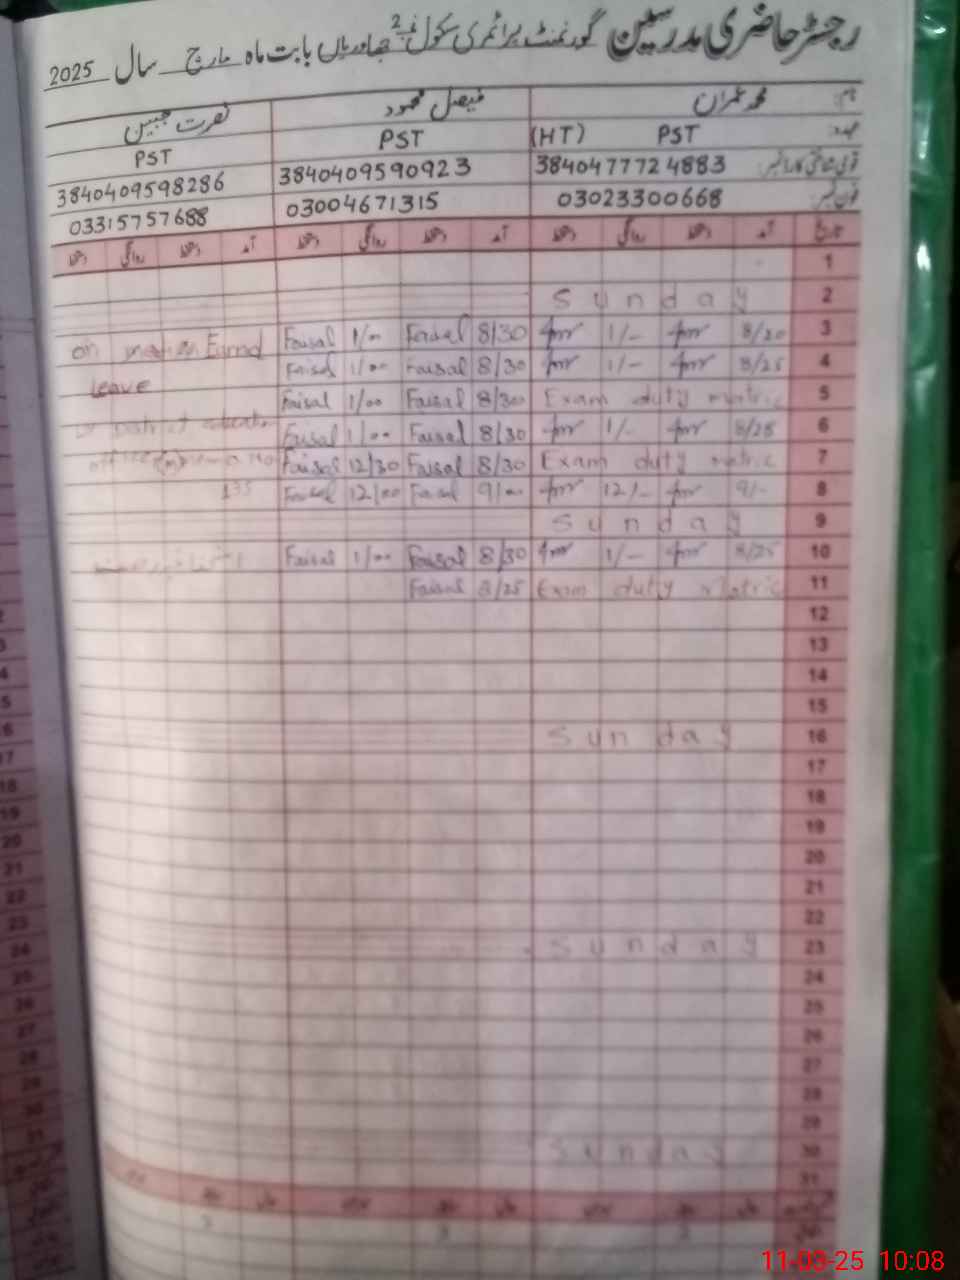 رجسٹر حاضری مدرسین گورنمنٹ پرائمری سکول نمبر 2 جھاوریاں بابت ماہ مارچ سال 2025
نام: محمد عمران فیصل محمود نصرت جبین
عہدہ: PST (HT) PST PST
قومی شناختی کارڈ نمبر: 3840477724883 3840409590923 3840409598286
فون نمبر: 03023300668 03004671315 03315757688
تاریخ آمد دستخط روانگی دستخط آمد دستخط روانگی دستخط آمد دستخط روانگی دستخط
1
2 Sunday
3 8/20 1/- 8/30 Faisal 1/00 Faisal on Earned
4 8/25 1/- 8/30 Faisal 1/00 Faisal leave
5 Exam duty matric 8/30 Faisal 1/00 Faisal
6 8/25 1/- 8/30 Faisal 1/00 Faisal District
7 Exam duty matric 8/30 Faisal 12/30 Faisal
8 9/- 12/- 9/00 Faisal 12/00 Faisal
9 Sunday
10 8/25 1/- 8/30 Faisal 1/00 Faisal
11 Exam duty Matric 8/25 Faisal
12
13
14
15
16 Sunday
17
18
19
20
21
22
23 Sunday
24
25
26
27
28
29
30 Sunday
31
11-03-25 10:08